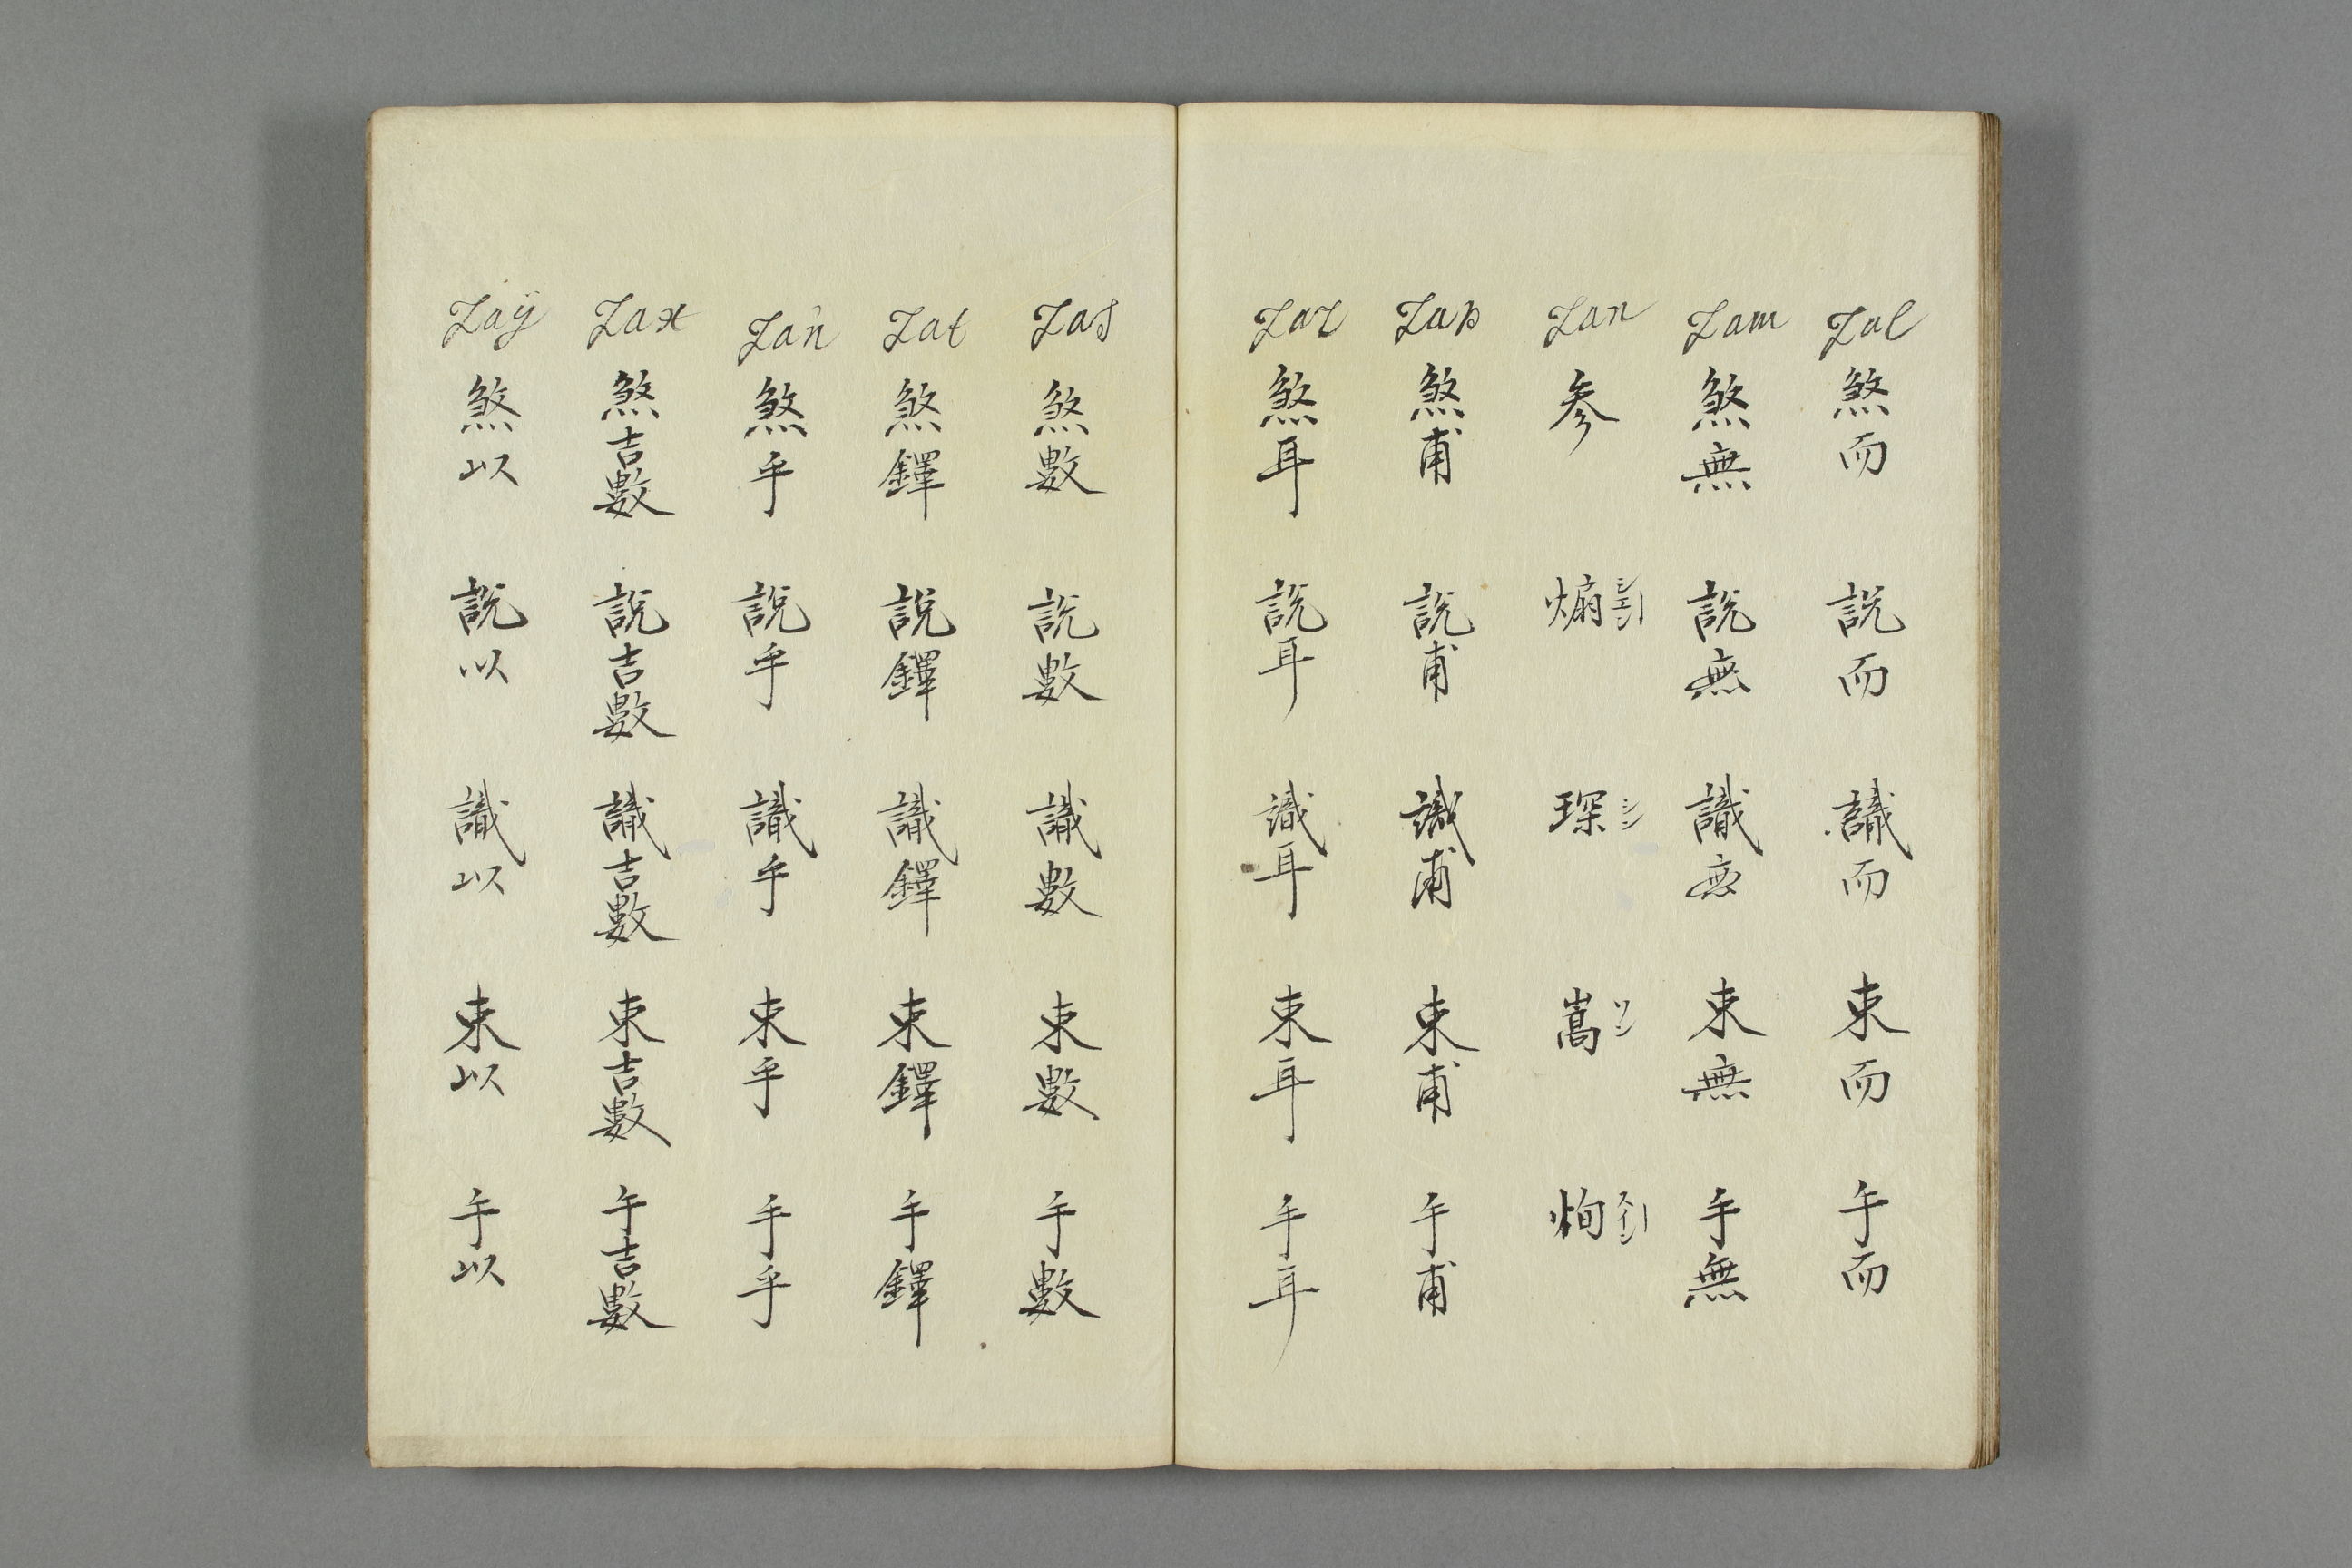 Zal 煞而 説而 識而 束而 手而
Zam 煞無 説無 識無 束無 手無
Zan 参 煽シエン 琛シン 嵩ソン 恂スイン
Zap 煞甫 説甫 識甫 束甫 手甫
Zar 煞耳 説耳 識耳 束耳 手耳
Zas 煞數 説數 識數 束數 手數
Zat 煞鐸 説鐸 識鐸 束鐸 手鐸
Zan 煞乎 説乎 識乎 束乎 手乎
Zax 煞吉數 説吉數 識吉數 束吉數 手吉數
Zaÿ 煞以 説以 識以 束以 手以